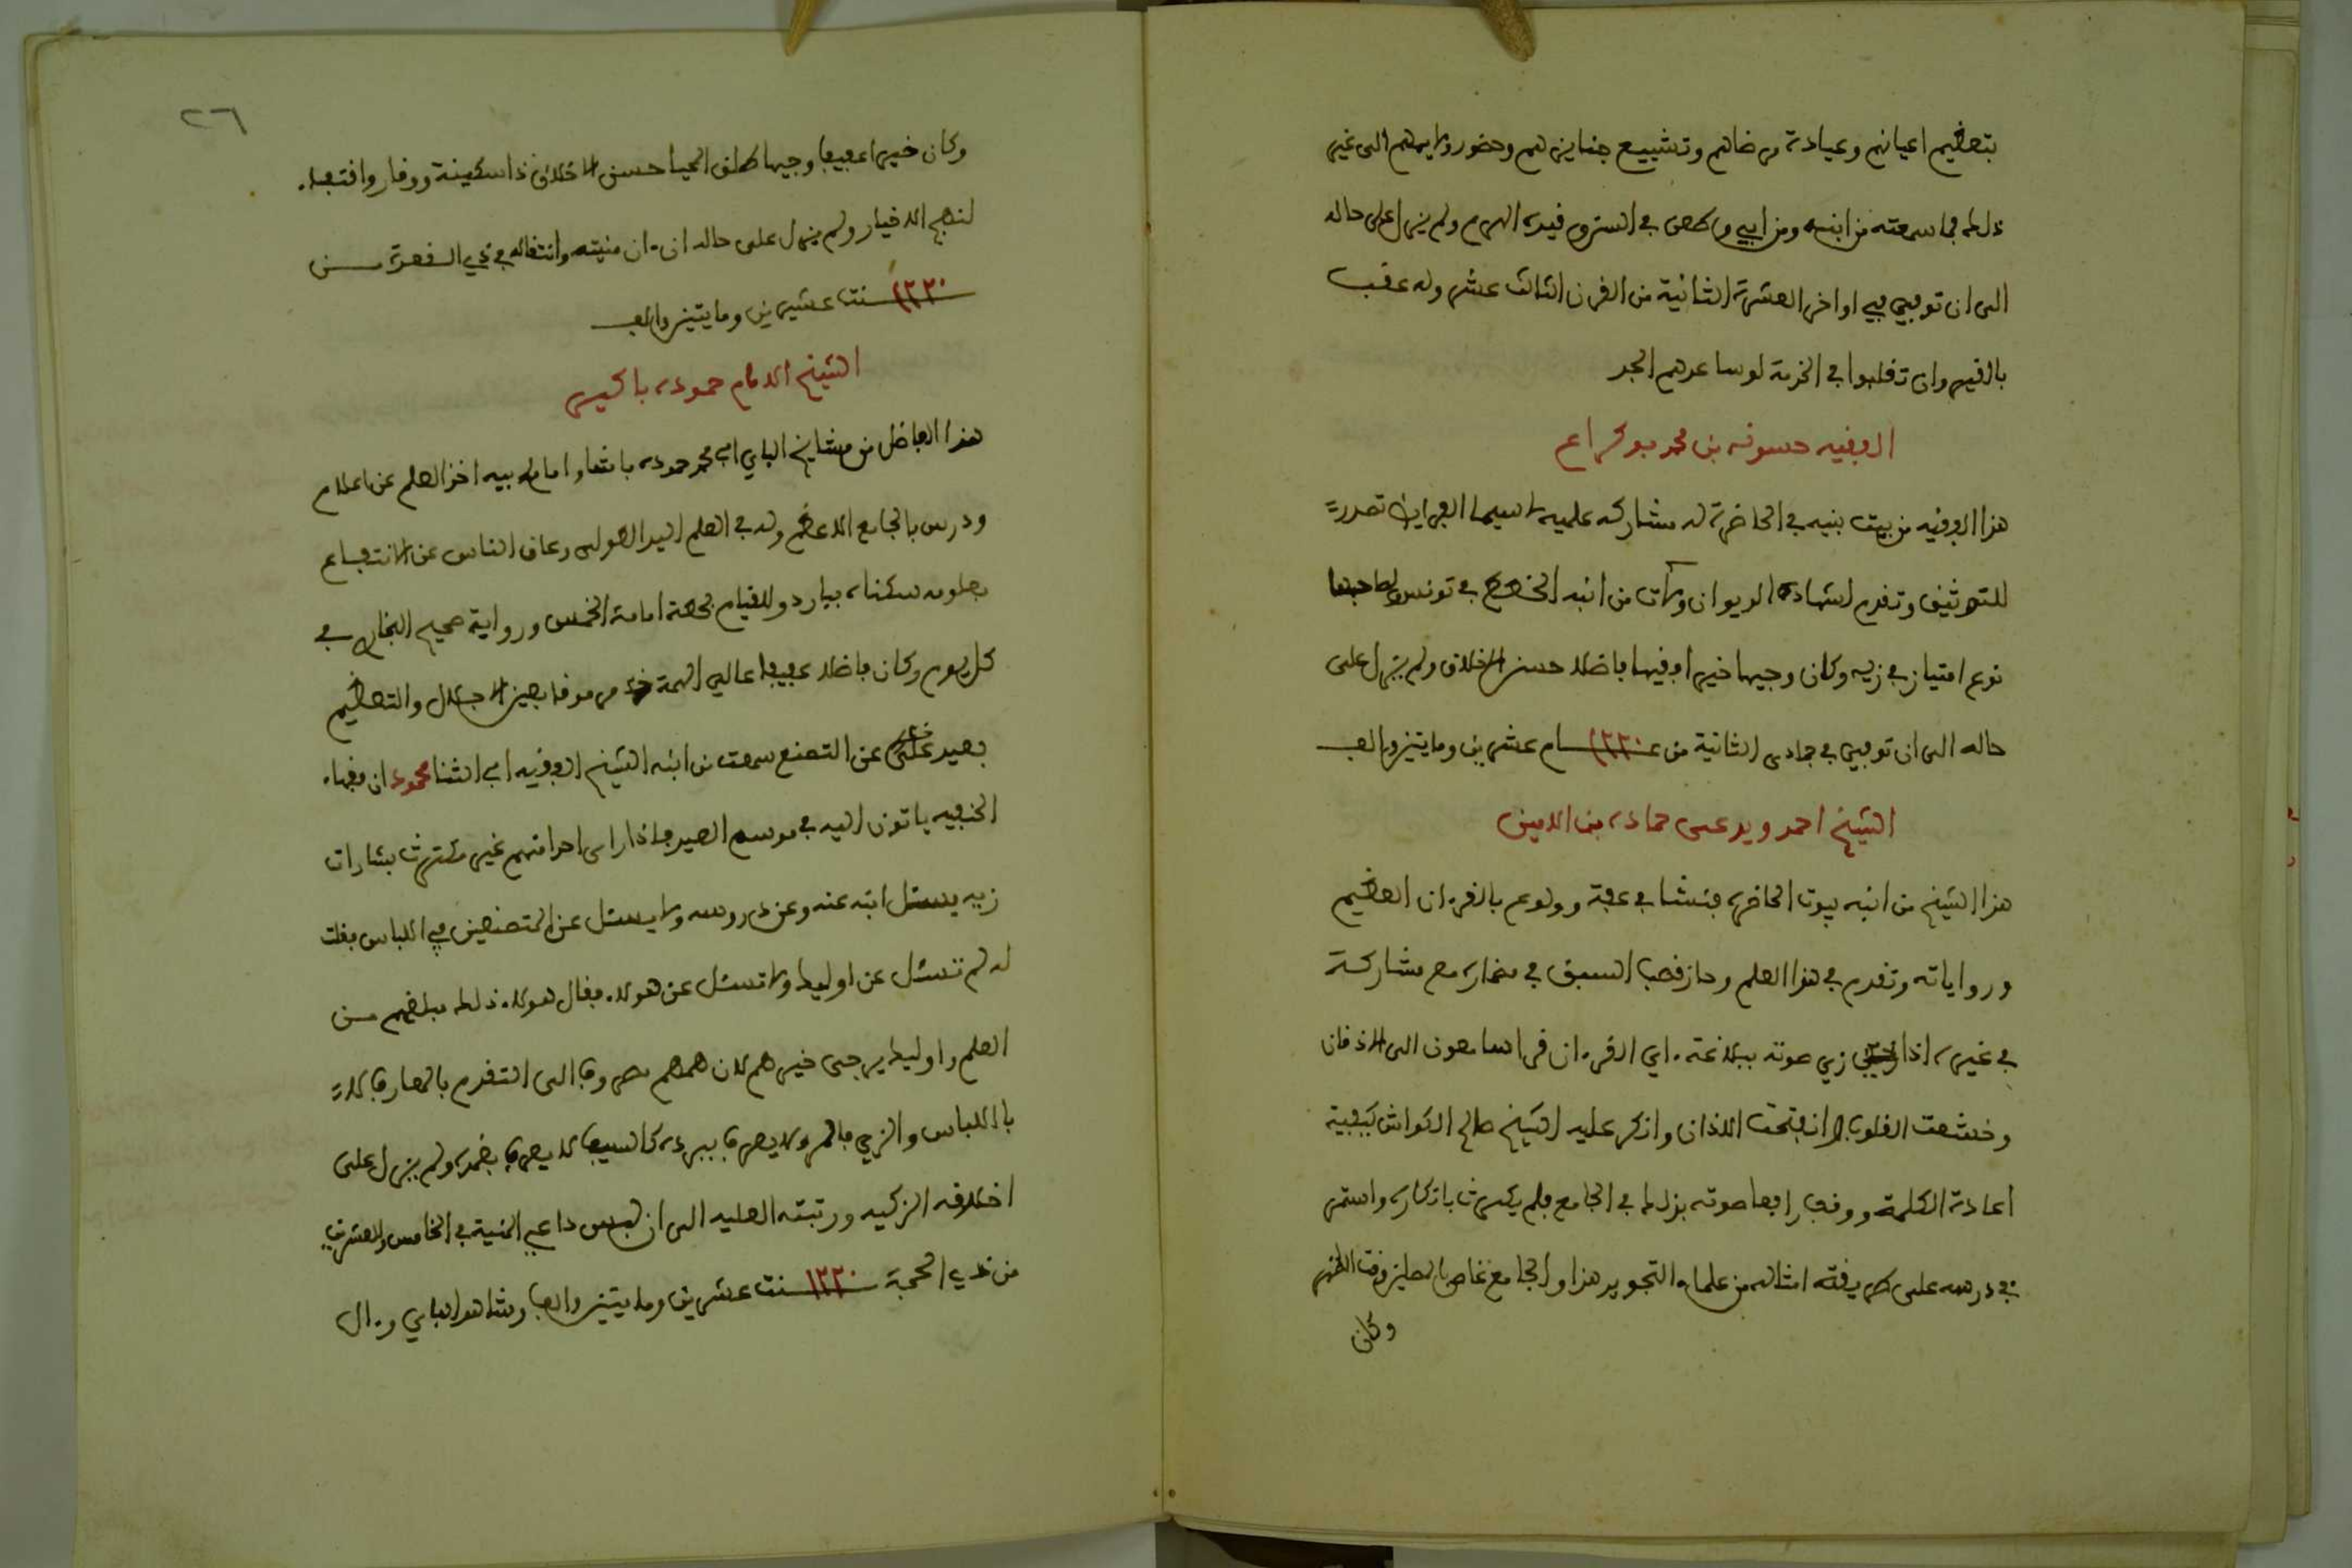 بتعظيم اعيانهم وعيادة مرضاهم وتشييع جنايزهم وحضور ولايمهم الى غير
ذلك مما سمعته من ابنه ومن ابي وطعن في السن وقيده الهرم ولم يزل على حاله
الى ان توفي في اواخر العشرة الثانية من القرن الثالث عشر وله عقب
بالقيروان تقلبوا في الخدمة لو ساعدهم الجد
الفقيه حسونه بن محمد بوكراع
هذا الفقيه من بيت بنيه في الحاضرة له مشاركه علميه لاسيما الفرايض تصدر
للتوثيق وتقدم لشهادة الديوان وكان من انبه الخطط في تونس ولصاحبها
نوع امتياز في زيه وكان وجيها خيرا فقيها فاضلا حسن الاخلاق ولم يزل على
حاله الى ان توفي في جمادى الثانية من عام ١٢٢٠ عشرين ومايتين والف
الشيخ احمد ويدعى حماده بن الامين
هذا الشيخ من انبه بيوت الحاضرة فنشا في عفة وولوع بالقرءان العظيم
ورواياته وتقدم في هذا العلم وحاز قصب السبق في مضماره مع مشاركة
في غيره اذا زين صوته ببلاغة ءاي القرءان خر السامعون الى الاذقان
وخشعت القلوب وانفتحت الاذان وانكر عليه الشيخ صالح الكواش كيفية
اعادة الكلمة ووقف رافعا صوته بذلك في الجامع فلم يكترث بانكاره واستمر
في درسه على طريقة امثاله من علماء التجويد هذا والجامع غاص بالمصلين وقت الظهر
وكان
٢٦
وكان خيرا عفيفا وجيها طلق المحيا حسن الاخلاق ذا سكينة ووقار واقتفاء
لنهج الاخيار ولم يزل على حاله الى ءان منيته وانتقاله في ذي القعدة من
سنة ١٢٢٠ عشرين ومايتين والف
الشيخ الامام حموده باكير
هذا الفاضل من مشايخ الباي ابي محمد حموده باشا وامام ابيه اخذ العلم عن اعلام
ودرس بالجامع الاعظم وله في العلم اليد الطولى وعاق الناس عن الانتفاع
بعلومه سكناه بباردو للقيام بخطة امامة الخمس ورواية صحيح البخاري في
كل يوم وكان فاضلا عفيفا عالي الهمة مرموقا بعين الاجلال والتعظيم
بعيدا عن التصنع سمعت من ابنه الشيخ الفقيه ابي الثنا محمود ان فقهاء
الحنفيه ياتون اليه في موسم العيد فاذا راى احدا منهم غير مكترث بشارات
زيه يسئل ابنه عنه وعن دروسه ولا يسئل عن المتصنعين في اللباس فقلت
له لم تسئل عن اوليك ولا تسئل عن هولاء فقال هولاء ذلك مبلغهم من
العلم واوليك يرجى خيرهم لان هممهم مصروفة الى التقدم بالمعارف لا
باللباس والزي فالمرء لا يعرف ببرده كالسيف لا يعرف بغمده ولم يزل على
اخلاقه الزكيه ورتبته العليه الى ان لبى داعي المنية في الخامس والعشرين
من ذي الحجة سنة ١٢٢٠ عشرين ومايتين والف وشاهد الباي وءال